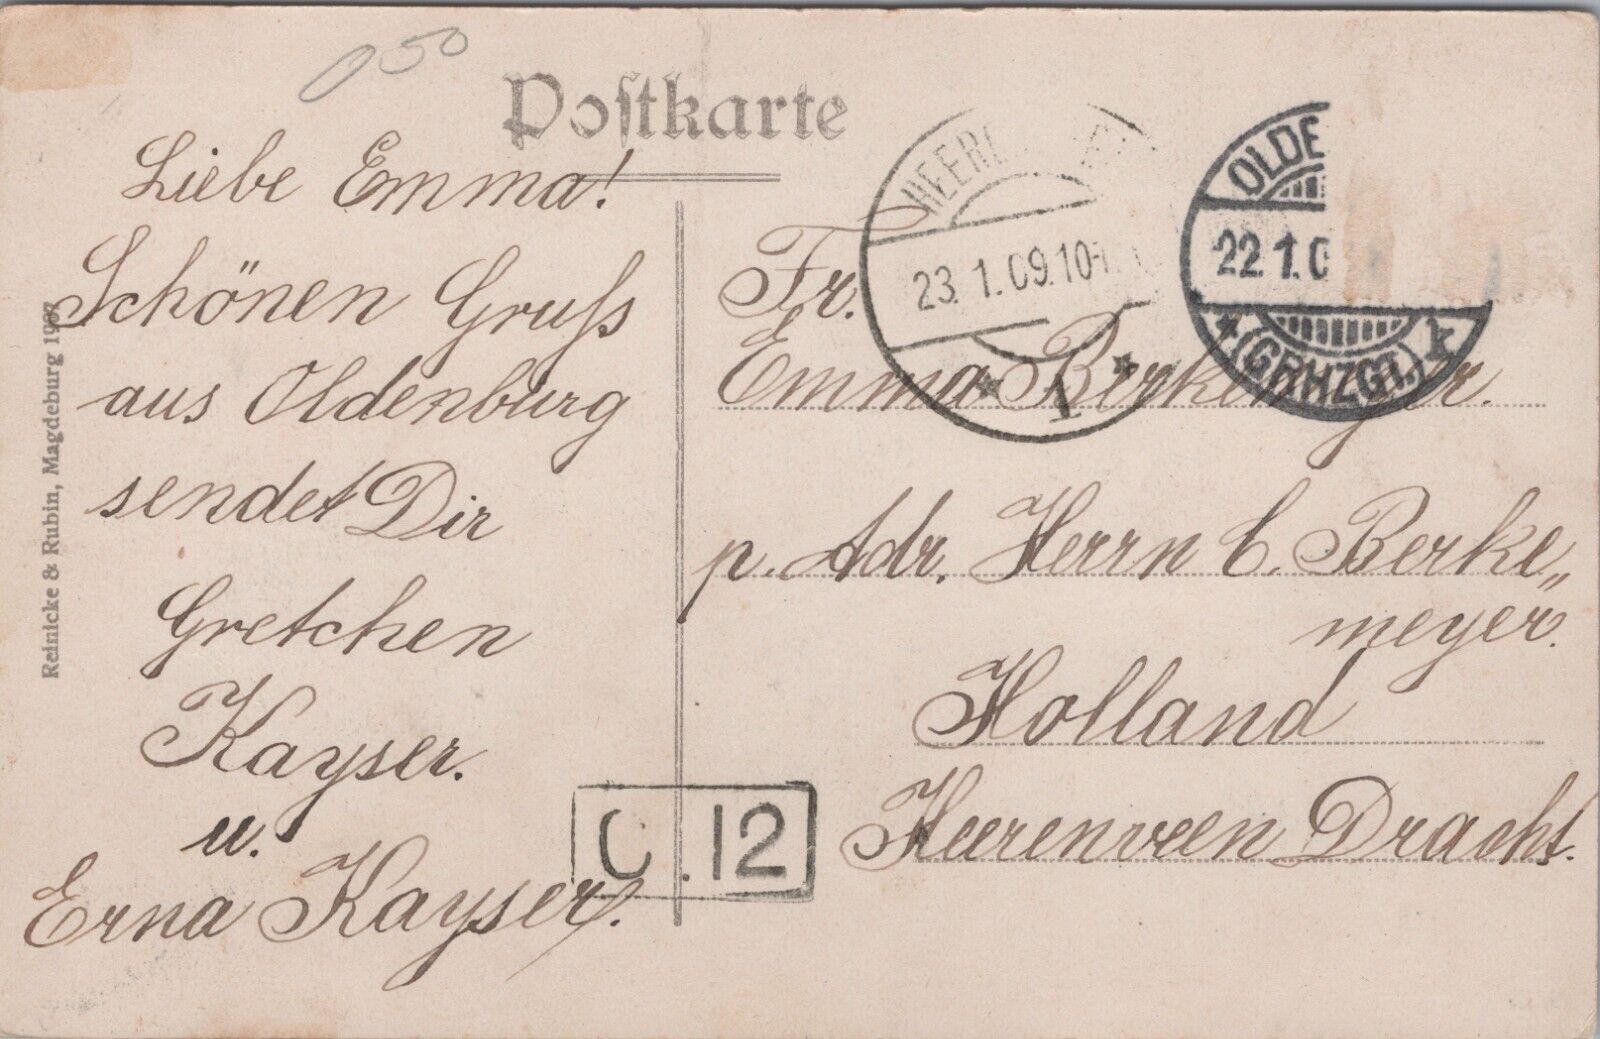 050
Postkarte
Liebe Emma!
Schönen Gruß
aus Oldenburg
sendet Dir
Gretchen
Kayser.
u.
Erna Kayser.
Reinicke & Rubin, Magdeburg 1907
23.1.09.10-
* 1 *
OLDE
22.1.0
* (GRHZGT.) k
Fr.
Emma Berkemeyer.
p. Adr. Herrn C. Berke„
meyer.
Holland
Heerenveen Dracht.
C.12